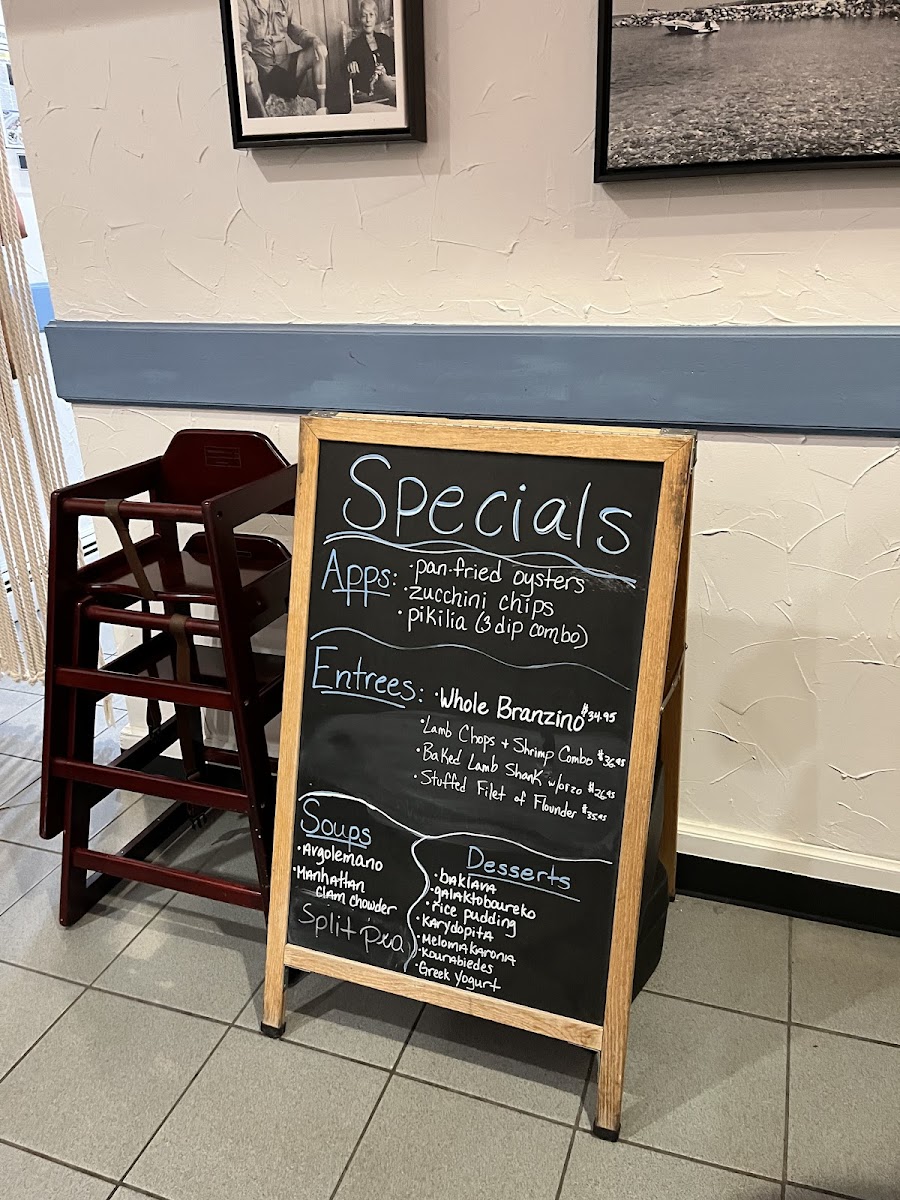 Specials
Apps: · pan-fried oysters
· zucchini chips
· pikilia (3 dip combo)
Entrees: · Whole Branzino $34.95
· Lamb Chops + Shrimp Combo $36.95
· Baked Lamb Shank w/orzo $26.95
· Stuffed Filet of Flounder $35.95
Soups
· Avgolemano
· Manhattan
Clam Chowder
Split Pea
Desserts
· baklava
· galaktoboureko
· rice pudding
· Karydopita
· Melomakaronia
· Kourabiedes
· Greek Yogurt